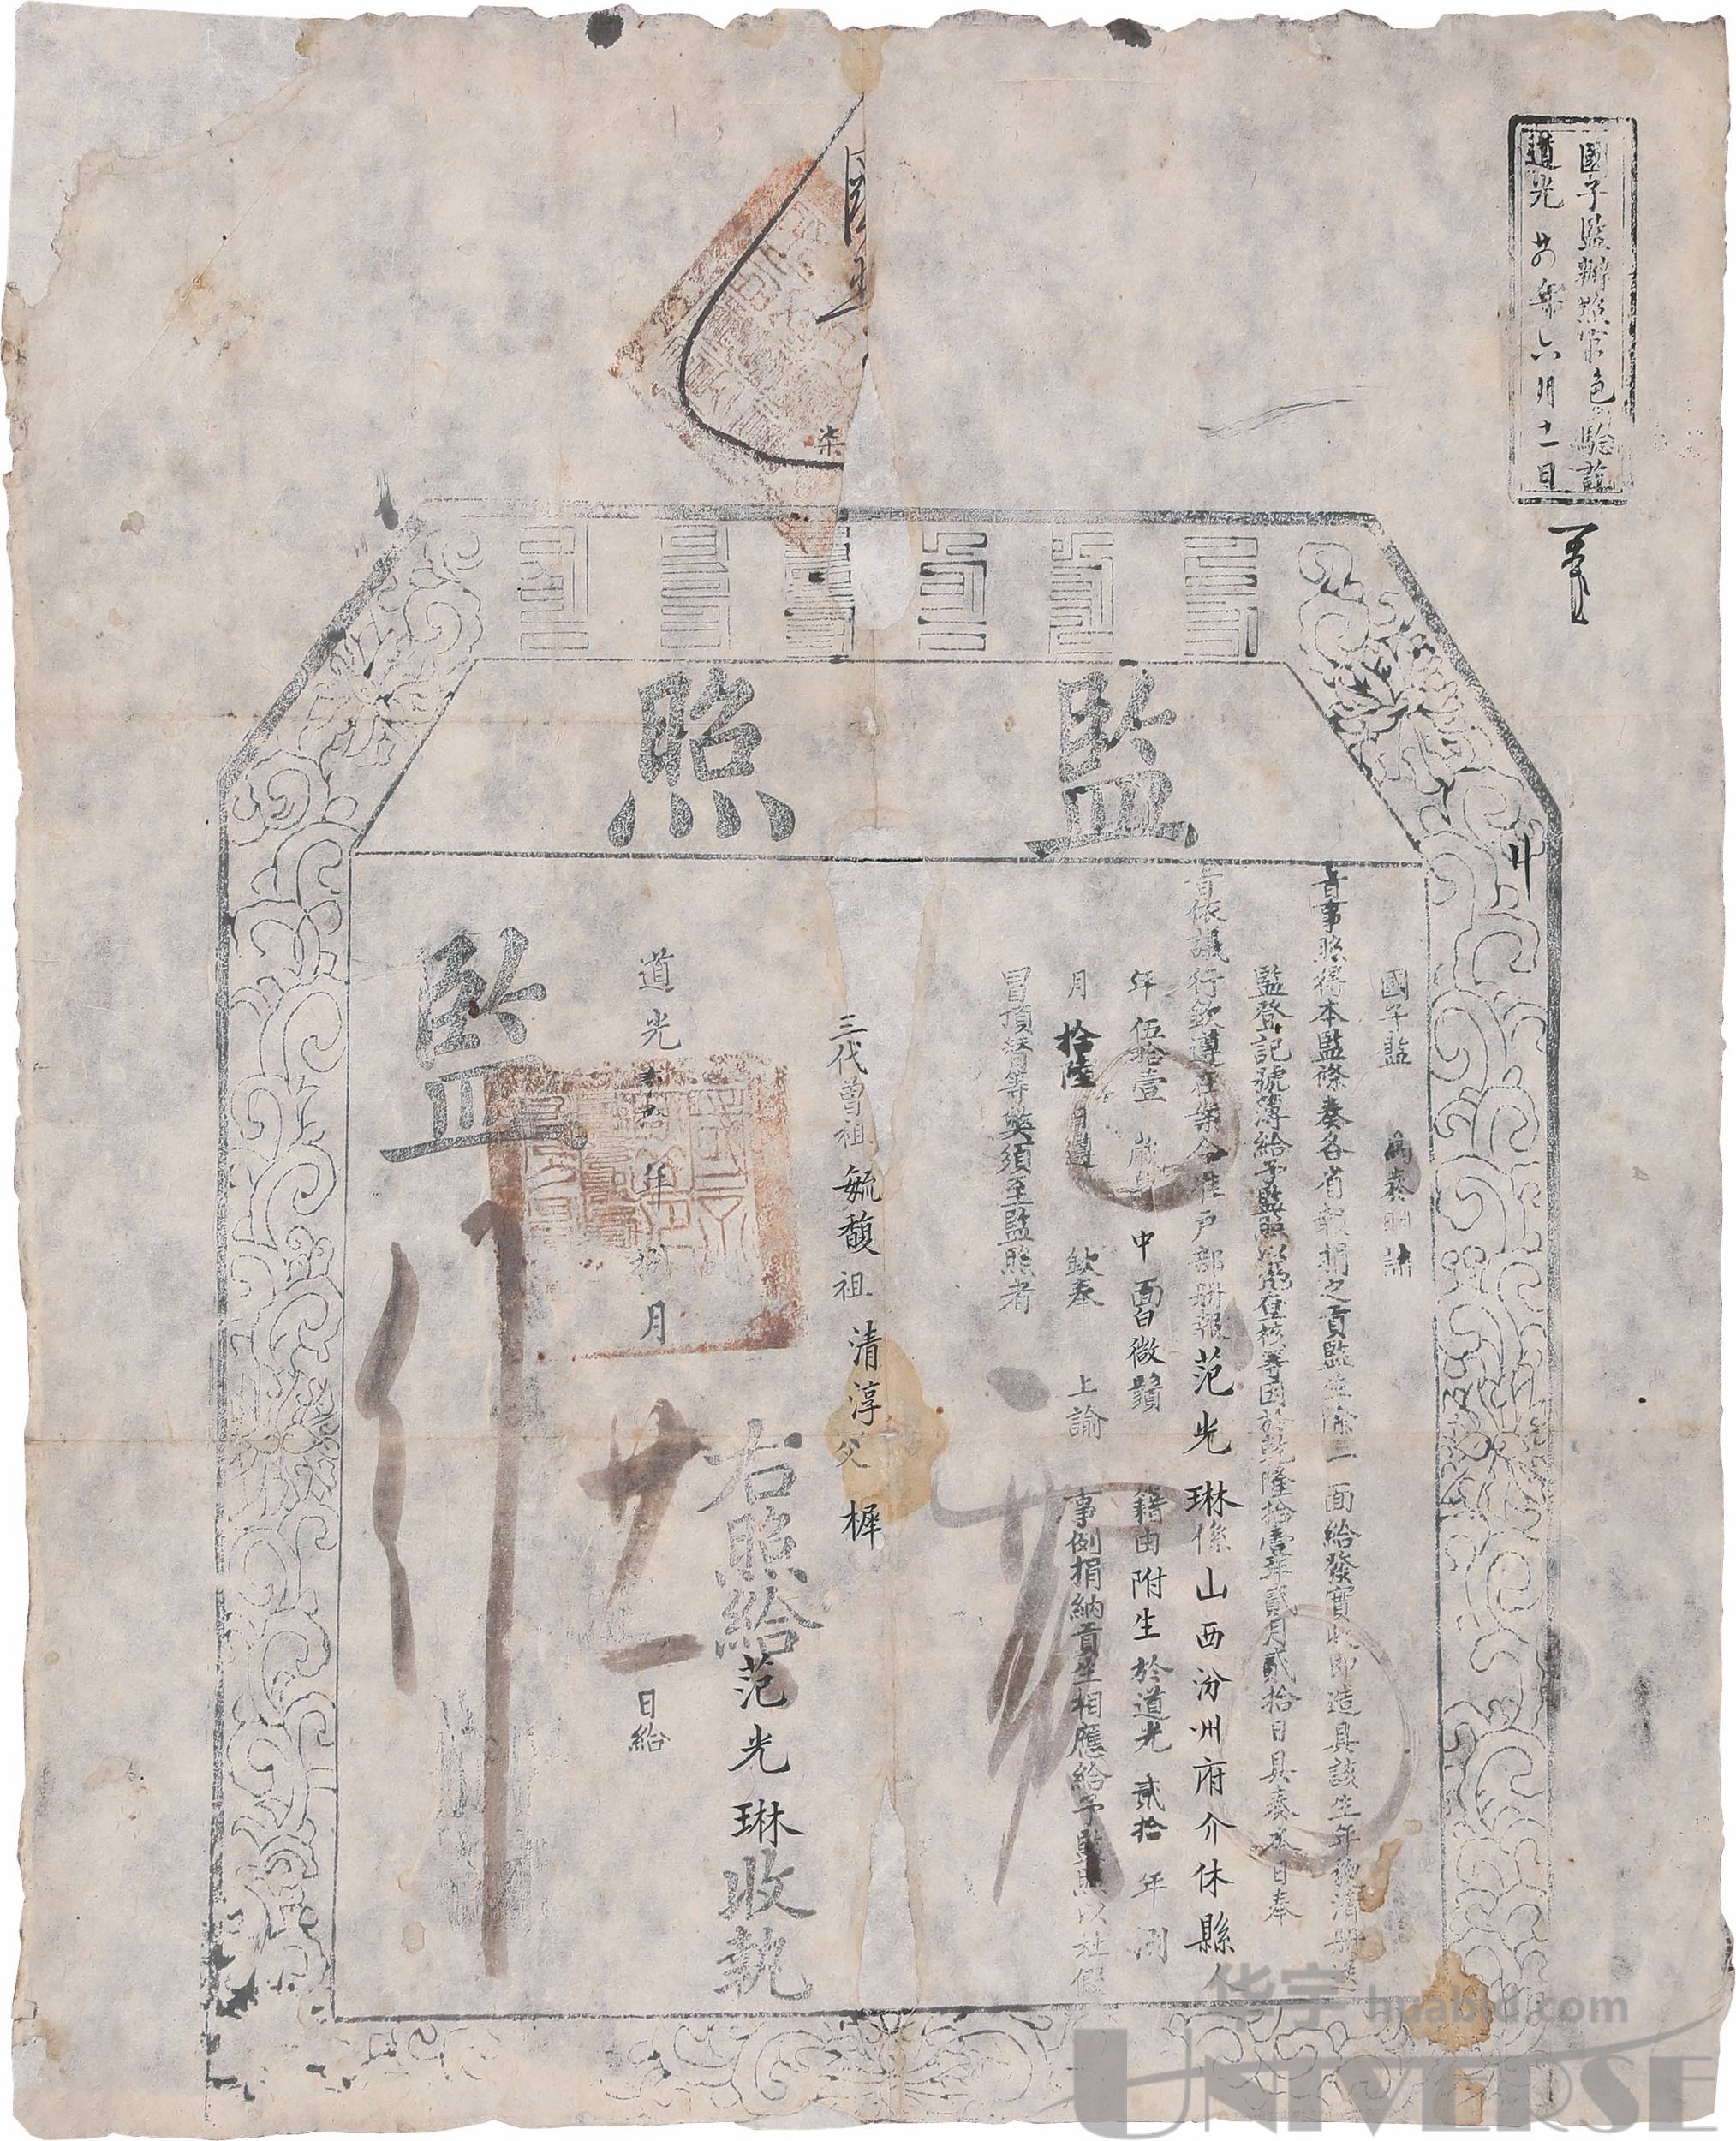 國子監辦照官色驗訖
道光 廿四年六月十一日
柒
監照
國子監 為奏明請
旨事照得本監條奏各省報捐之貢監生除一面給發實收即造具該生年貌清冊送
監登記號簿給予監照以憑查核等因於乾隆拾壹年貳月貳拾日具奏本日奉
旨依議行欽遵在案今准戶部冊報范光琳係山西汾州府介休縣人
年伍拾壹歲身中面白微鬚 籍由附生於道光貳拾年 閏
月拾陸日遵 欽奉 上諭 事例捐納貢生相應給予監照以杜假
冒頂替等獘須至監照者
三代曾祖毓馥祖清淳父樨
右照給范光琳收執
道光 年捌月廿一日給
監
行
华宇 huabid.com
UNIVERSE